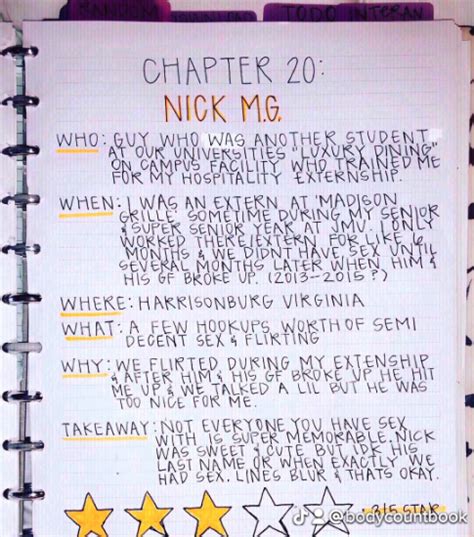 RANDOM
TODO INTERAN
CHAPTER 20:
NICK M.G.
WHO: GUY WHO WAS ANOTHER STUDENT
AT OUR UNIVERSITIES "LUXURY DINING"
ON CAMPUS FACILITY WHO TRAINED ME
FOR MY HOSPITALITY EXTERNSHIP.
WHEN: I WAS AN EXTERN AT 'MADISON
GRILLE' SOMETIME DURING MY SENIOR
& SUPER SENIOR YEAR AT JMU. I ONLY
WORKED THERE/EXTERN FOR LIKE 6
MONTHS & WE DIDNT HAVE SEX UNTIL
SEVERAL MONTHS LATER WHEN HIM &
HIS GF BROKE UP. (2013-2015?)
WHERE: HARRISONBURG VIRGINIA
WHAT: A FEW HOOKUPS WORTH OF SEMI
DECENT SEX & FLIRTING
WHY: WE FLIRTED DURING MY EXTENSHIP
& AFTER HIM & HIS GF BROKE UP HE HIT
ME UP & WE TALKED A LIL BUT HE WAS
TOO NICE FOR ME.
TAKEAWAY: NOT EVERYONE YOU HAVE SEX
WITH IS SUPER MEMORABLE. NICK
WAS SWEET & CUTE BUT IDK HIS
LAST NAME OR WHEN EXACTLY WE
HAD SEX. LINES BLUR & THATS OKAY.
3/5 STAR
@bodycountbook